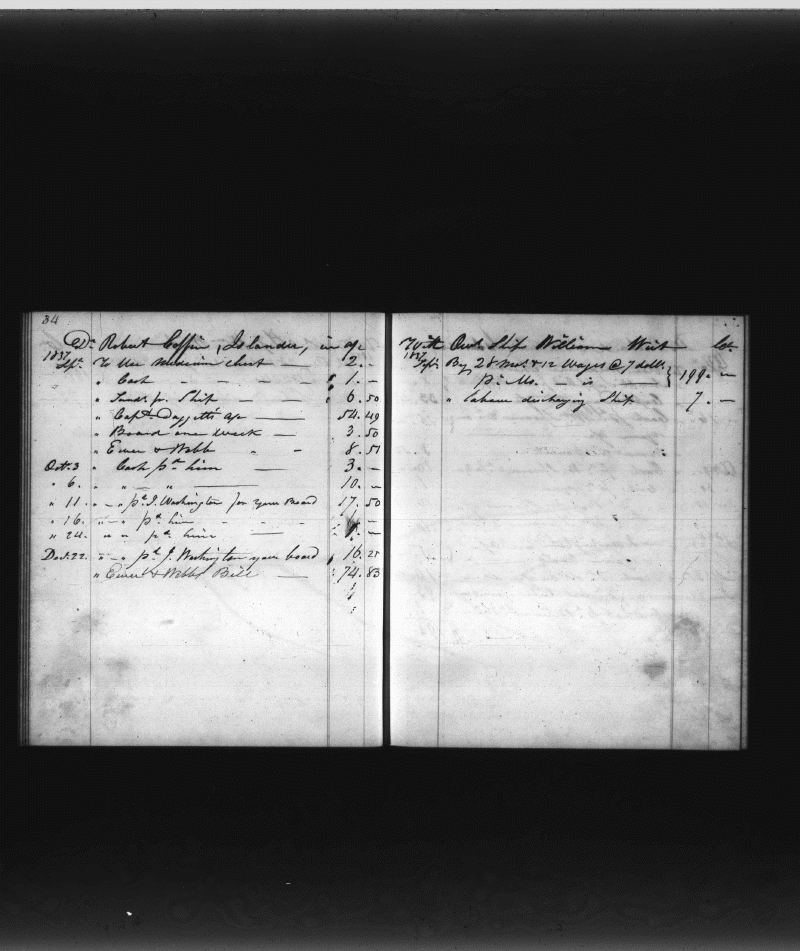 34
Dr. Robert Coffin, Islander, in a/c
1837
Sept. To Use Medicine chest — 2. —
" Cash - - - - " 1. —
" Sunds. pr. Ship - - " 6. 50
" Capt. Daggetts a/c — 54. 49
" Board one week — 3. 50
" Ewer & Webb " - 8. 51
Oct. 3 " Cash pd. him — 3. —
" 6. " " — " — 10. —
" 11. " — " pd. J. Washington for your Board 17. 50
" 16. " — " pd. him - - -
" 24. " " " pd. him —
Decr. 22. " — " pd. J. Washington your board 16. 25
" Ewer & Webbs Bill — 74. 83
With Ship William Wirt Cr.
1837
Sept. By 28 Mos. & 12 Wages @ 7 dolls.
pr. Mo. — — } 199. —
" Labour discharging Ship 7. —